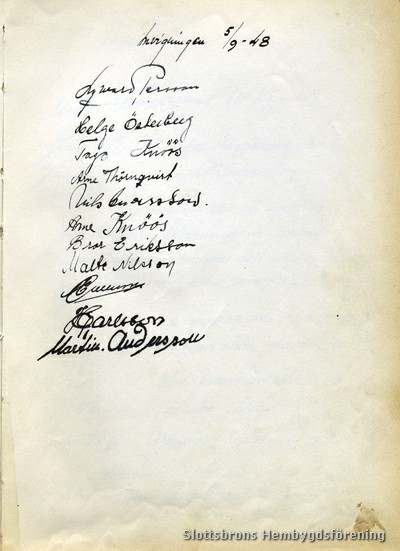 Invigningen 5/9-48
Persson
Helge Österberg
Tage Knöös
Arne Thörnquist
Nils Andersson.
Arne Knöös
Bror Eriksson
Malte Nilsson
Karlsson
Martin. Andersson
Slottsbrons Hembygdsförening